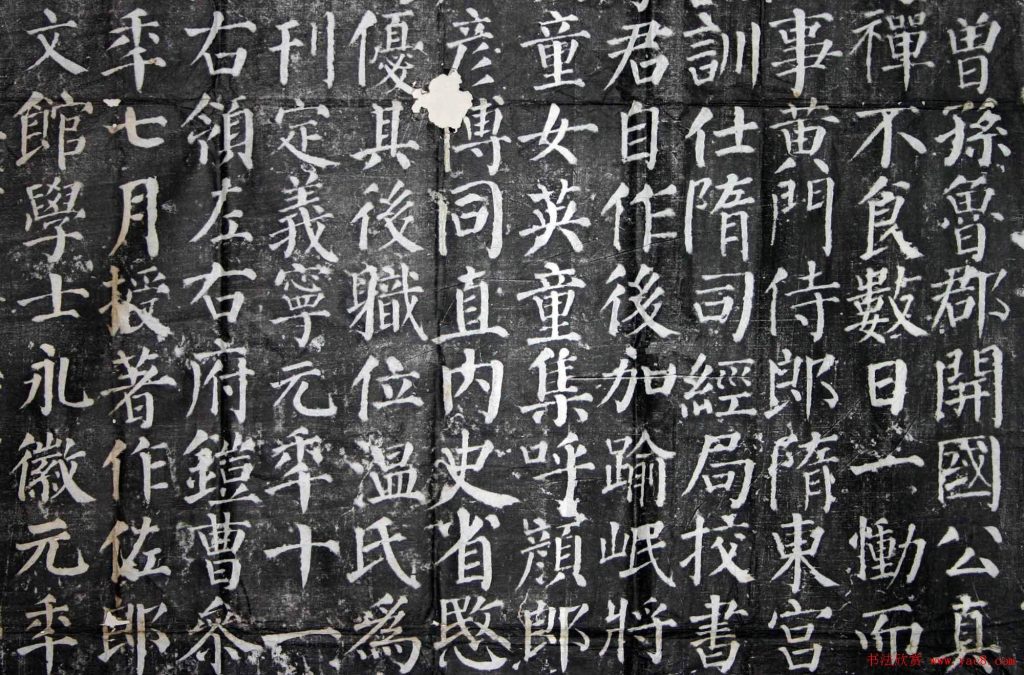 曾孫魯郡開國公真
禪不食數日一慟而
事黄門侍郎隋東宫
訓仕隋司經局挍書
君自作後加踰岷將
童女英童集呼顏郎
彦博同直内史省愍
優其後職位温氏爲
刊定義寧元年十一
右領左右府鎧曹參
年七月授著作佐郎
文館學士永徽元年
书法欣赏 www.yac8.com